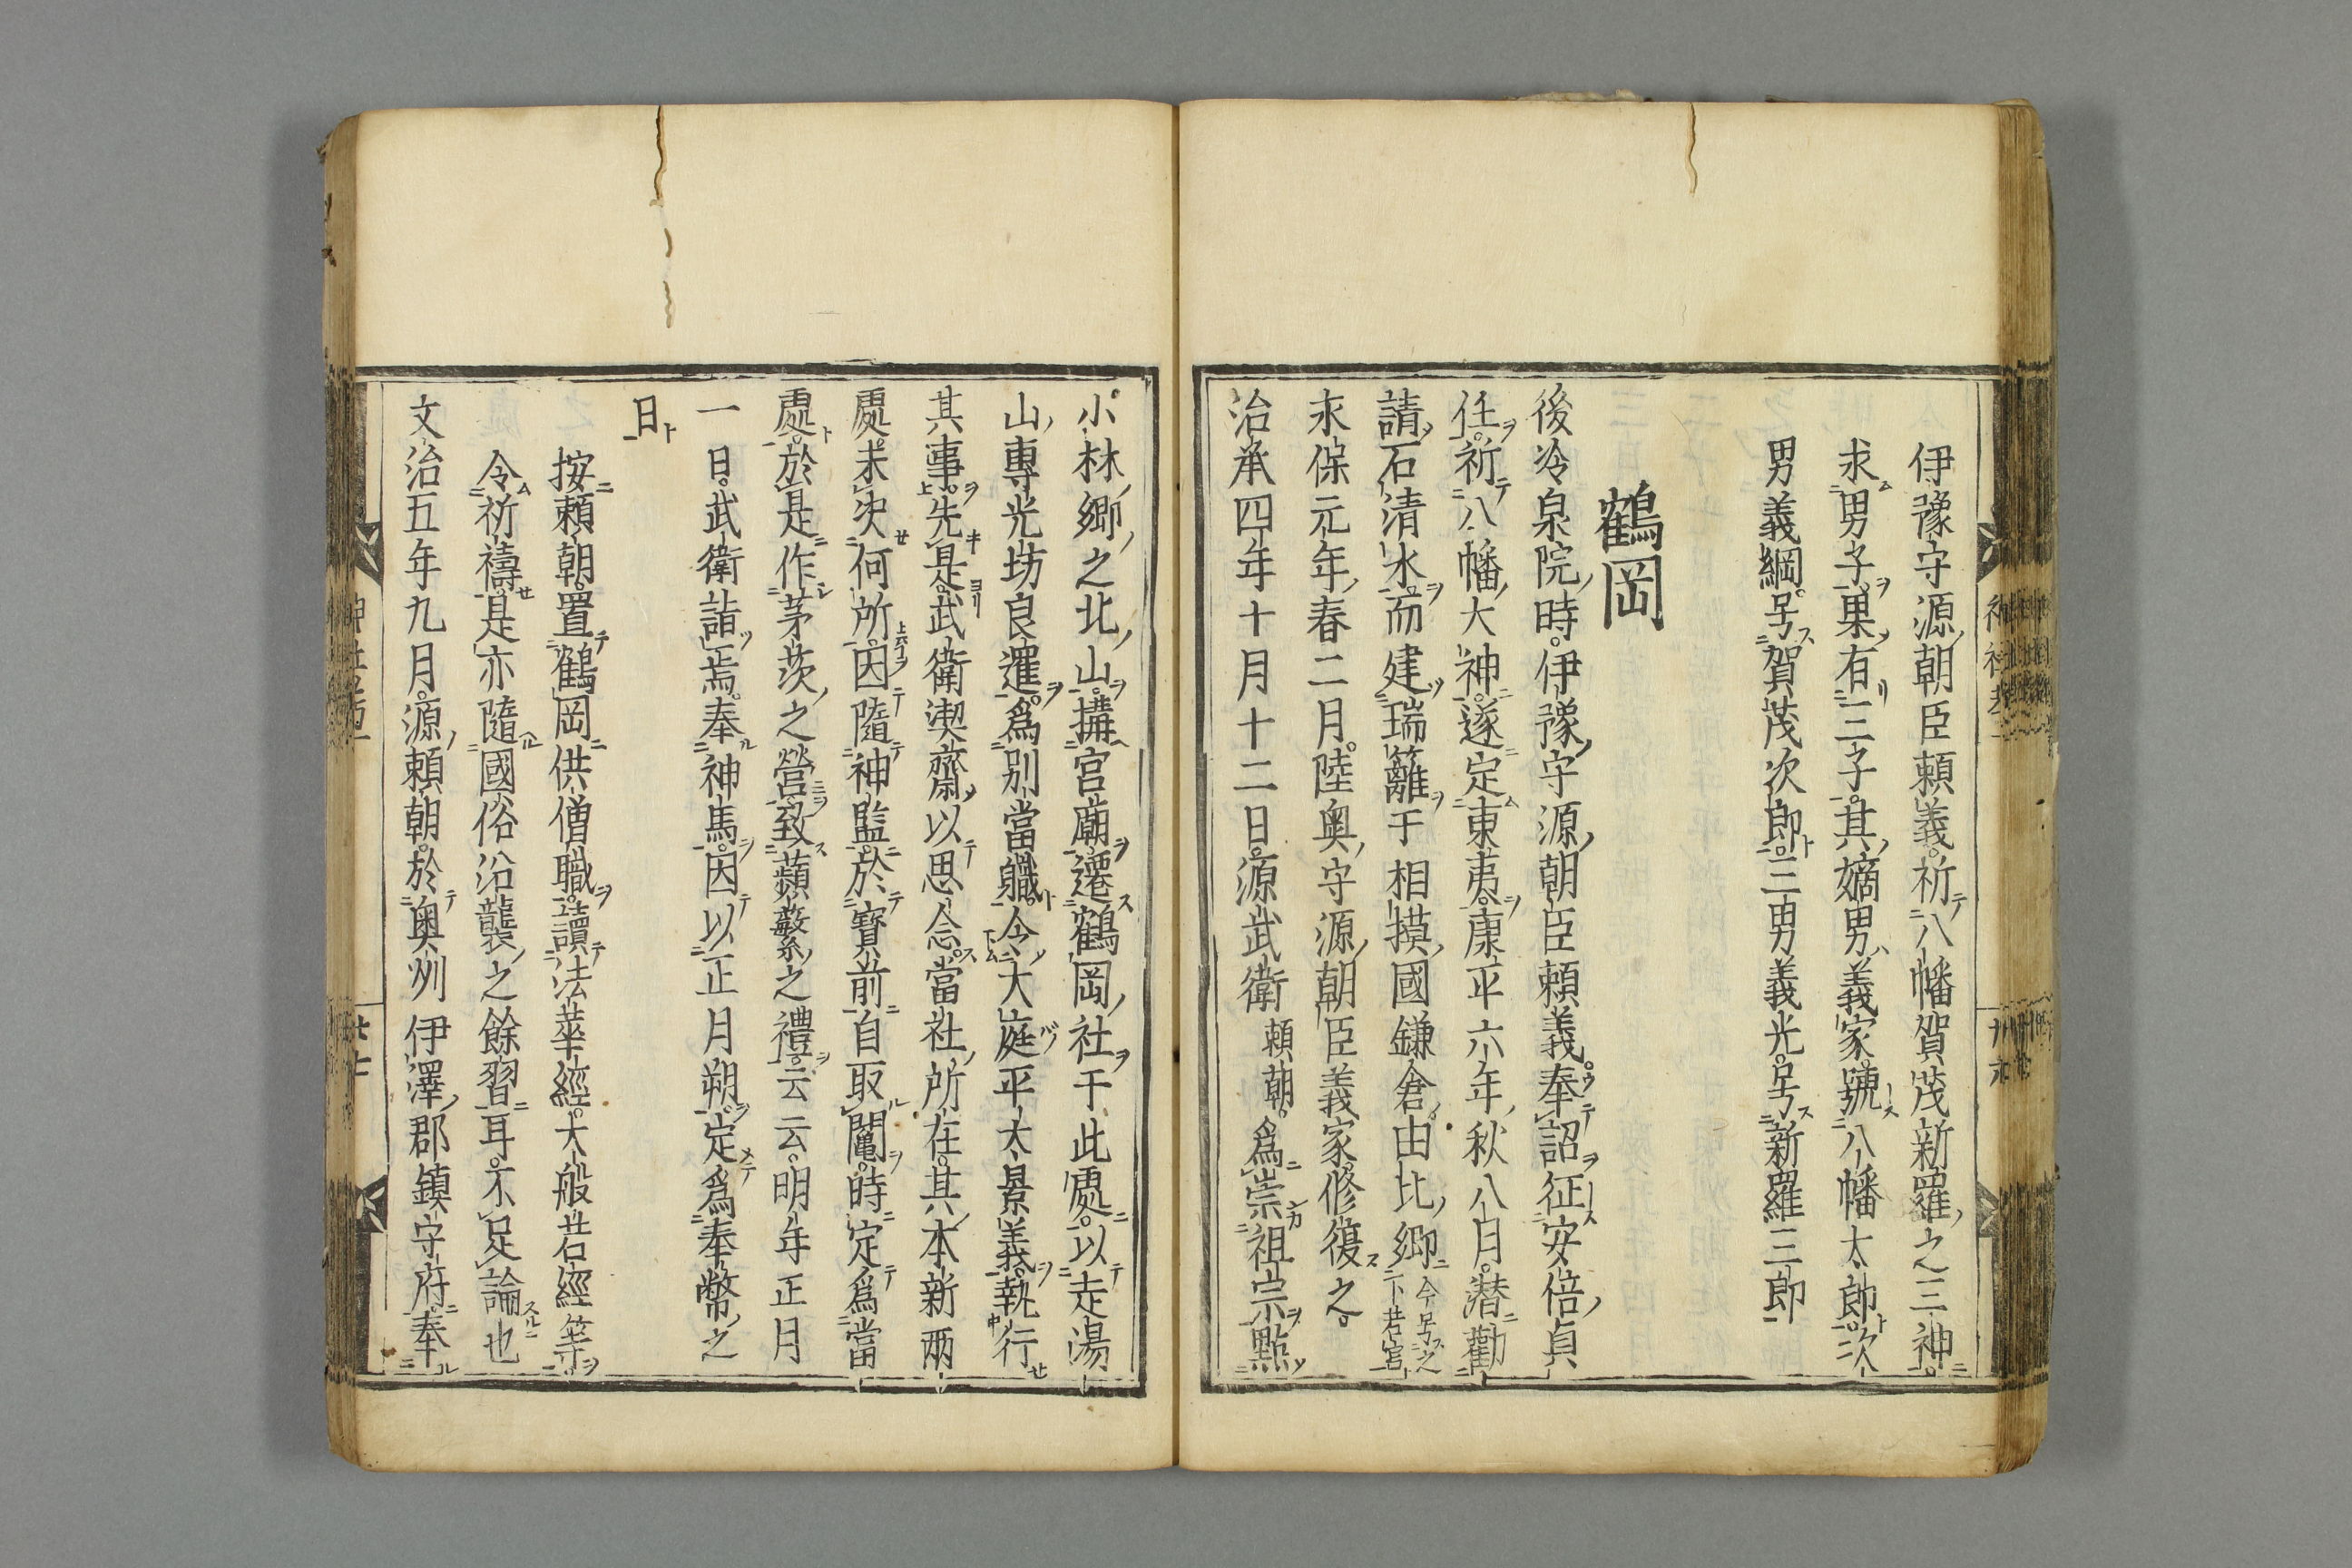 伊豫守源朝臣頼義祈八幡賀茂新羅之三神
求男子果有三子其嫡男義家號八幡太郎次
男義綱号賀茂次郎三男義光号新羅三郎
鶴岡
後冷泉院時伊豫守源朝臣頼義奉詔征安倍貞
任祈八幡大神遂定東夷康平六年秋八月潜勸
請石清水而建瑞籬于相摸國鎌倉由比郷今号之下若宮
永保元年春二月陸奥守源朝臣義家修復之
治承四年十月十二日源武衛頼朝為崇祖宗點
小林郷之北山搆宮廟遷鶴岡社于此處以走湯
山專光坊良暹為別當職令大庭平太景義執行
其事先是武衛潔齋以思念當社所在其本新兩
處未决何所因隨神監於寳前自取鬮時定為當
處於是作茅茨之營致蘋蘩之禮云云明年正月
一日武衛詣焉奉神馬因以正月朔定為奉幣之
日
按頼朝置鶴岡供僧職讀法華經大般若經等
令祈禱是亦隨國俗沿襲之餘習耳不足論也
文治五年九月源頼朝於奥州伊澤郡鎮守府奉